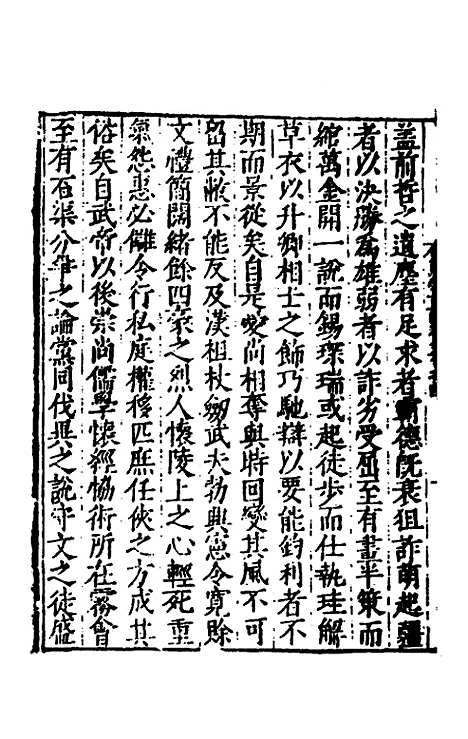 蓋前哲之遺塵有足求者霸德旣衰狙詐萌起彊
者以决勝爲雄弱者以詐劣受屈至有畫半策而
綰萬金開一說而錫琛瑞或起徒步而仕執珪解
草衣以升卿相士之飾巧馳辯以要能釣利者不
期而景從矣自是愛尚相奪與時回變其風不可
留其敝不能反及漢祖杖劒武夫勃興憲令寬賖
文禮簡闊緒餘四豪之烈人懷陵上之心輕死重
氣怨惠必讎令行私庭權移匹庶任俠之方成其
俗矣自武帝以後崇尚儒學懷經協術所在霧會
至有石渠分爭之論黨同伐異之說守文之徒盛